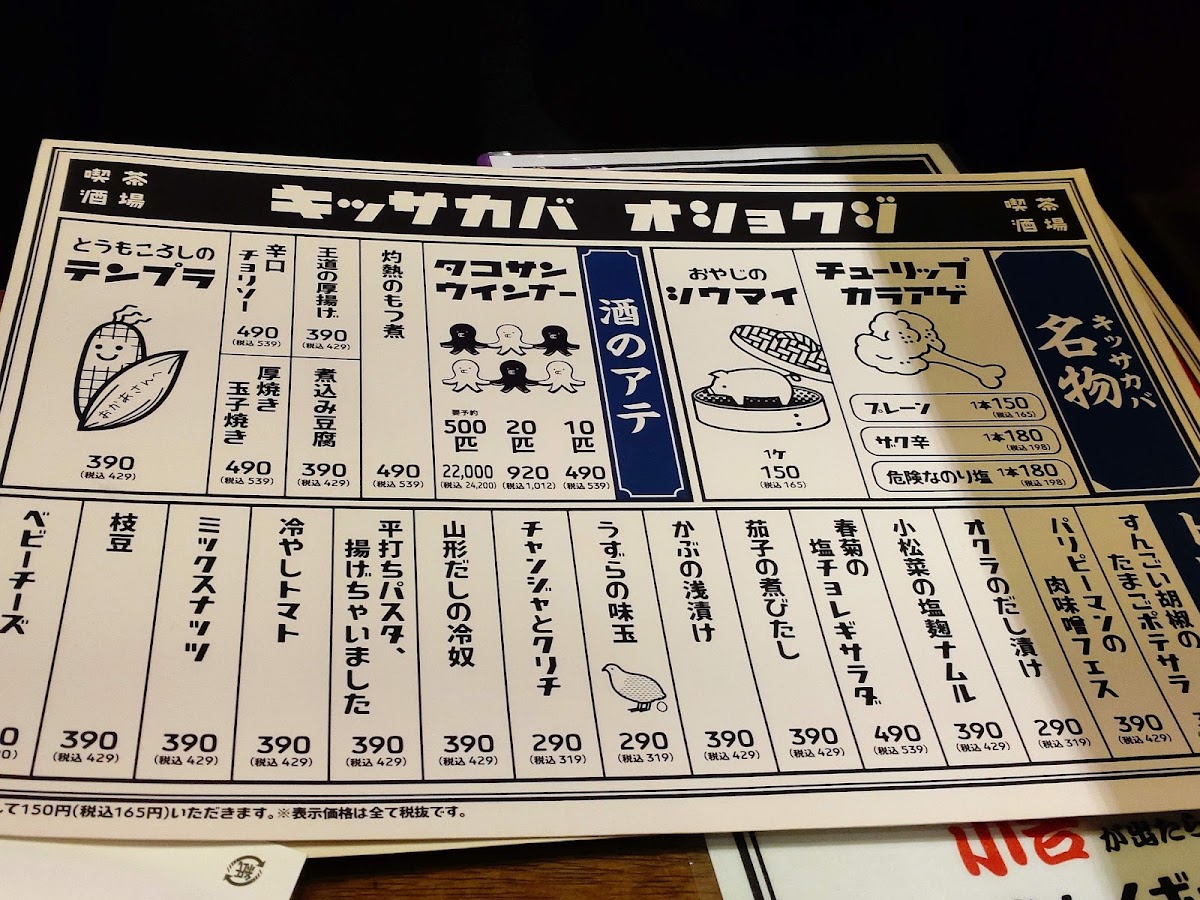 喫茶
酒場
キッサカバ オショクジ
喫茶
酒場
キッサカバ
名物
チューリップ
カラアゲ
プレーン 1本150
(税込165)
ザク辛 1本180
(税込198)
危険なのり塩 1本180
(税込198)
おやじの
シウマイ
1ケ
150
(税込165)
酒のアテ
タコサン
ウインナー
10匹
490
(税込539)
20匹
920
(税込1,012)
要予約
500匹
22,000
(税込24,200)
灼熱のもつ煮
490
(税込539)
王道の厚揚げ
390
(税込429)
煮込み豆腐
390
(税込429)
辛口
チョリソー
490
(税込539)
厚焼き
玉子焼き
490
(税込539)
とうもころしの
テンプラ
おかあさんへ
390
(税込429)
すんごい胡椒の
たまごポテサラ
390
(税込429)
パリピーマンの
肉味噌フェス
290
(税込319)
オクラのだし漬け
390
(税込429)
小松菜の塩麹ナムル
490
(税込539)
春菊の
塩チョレギサラダ
390
(税込429)
茄子の煮びたし
390
(税込429)
かぶの浅漬け
290
(税込319)
うずらの味玉
290
(税込319)
チャンジャとクリチ
390
(税込429)
山形だしの冷奴
390
(税込429)
平打ちパスタ、
揚げちゃいました
390
(税込429)
冷やしトマト
390
(税込429)
ミックスナッツ
390
(税込429)
枝豆
390
(税込429)
ベビーチーズ
して150円(税込165円)いただきます。※表示価格は全て税抜です。
紙
が出たら